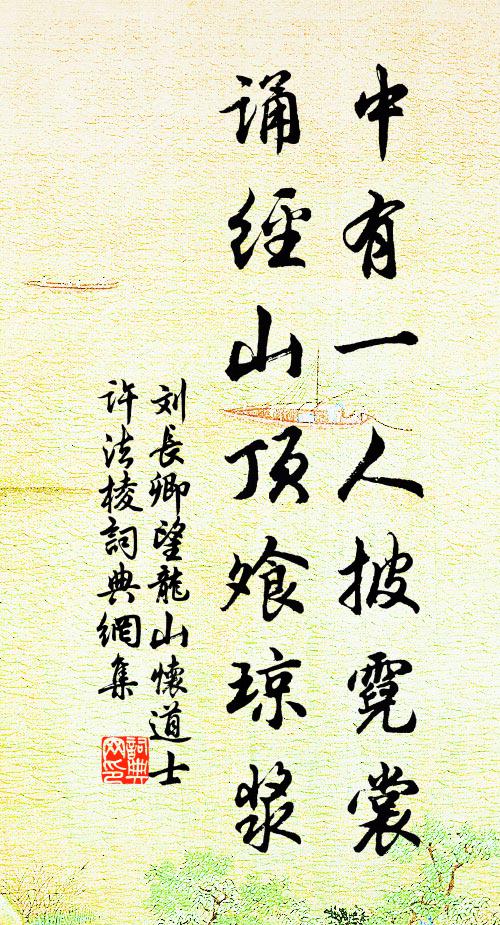 中有一人披霓裳
诵经山顶飧琼浆
刘長卿望龍山懷道士
许法棱詞典網集
詞典网印